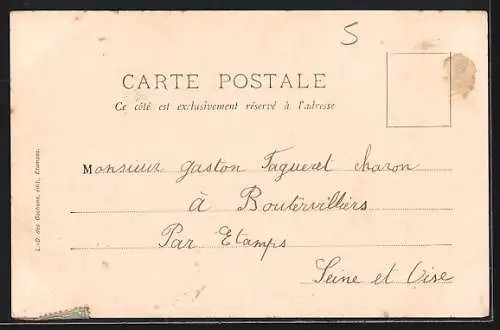 S
CARTE POSTALE
Ce côté est exclusivement réservé à l'adresse
Monsieur gaston Tagueret charon
à Boutervilliers
Par Etamps
Seine et Oise
L.-D. des Gachons, édit., Etampes.